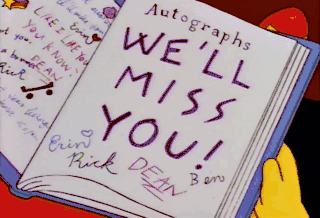 LIKE I LIKE YOU
YOU KNOW!
Erin
DEAN
Rick
Autographs
WE'LL
MISS
YOU!
Erin
Rick
DEAN
Ben